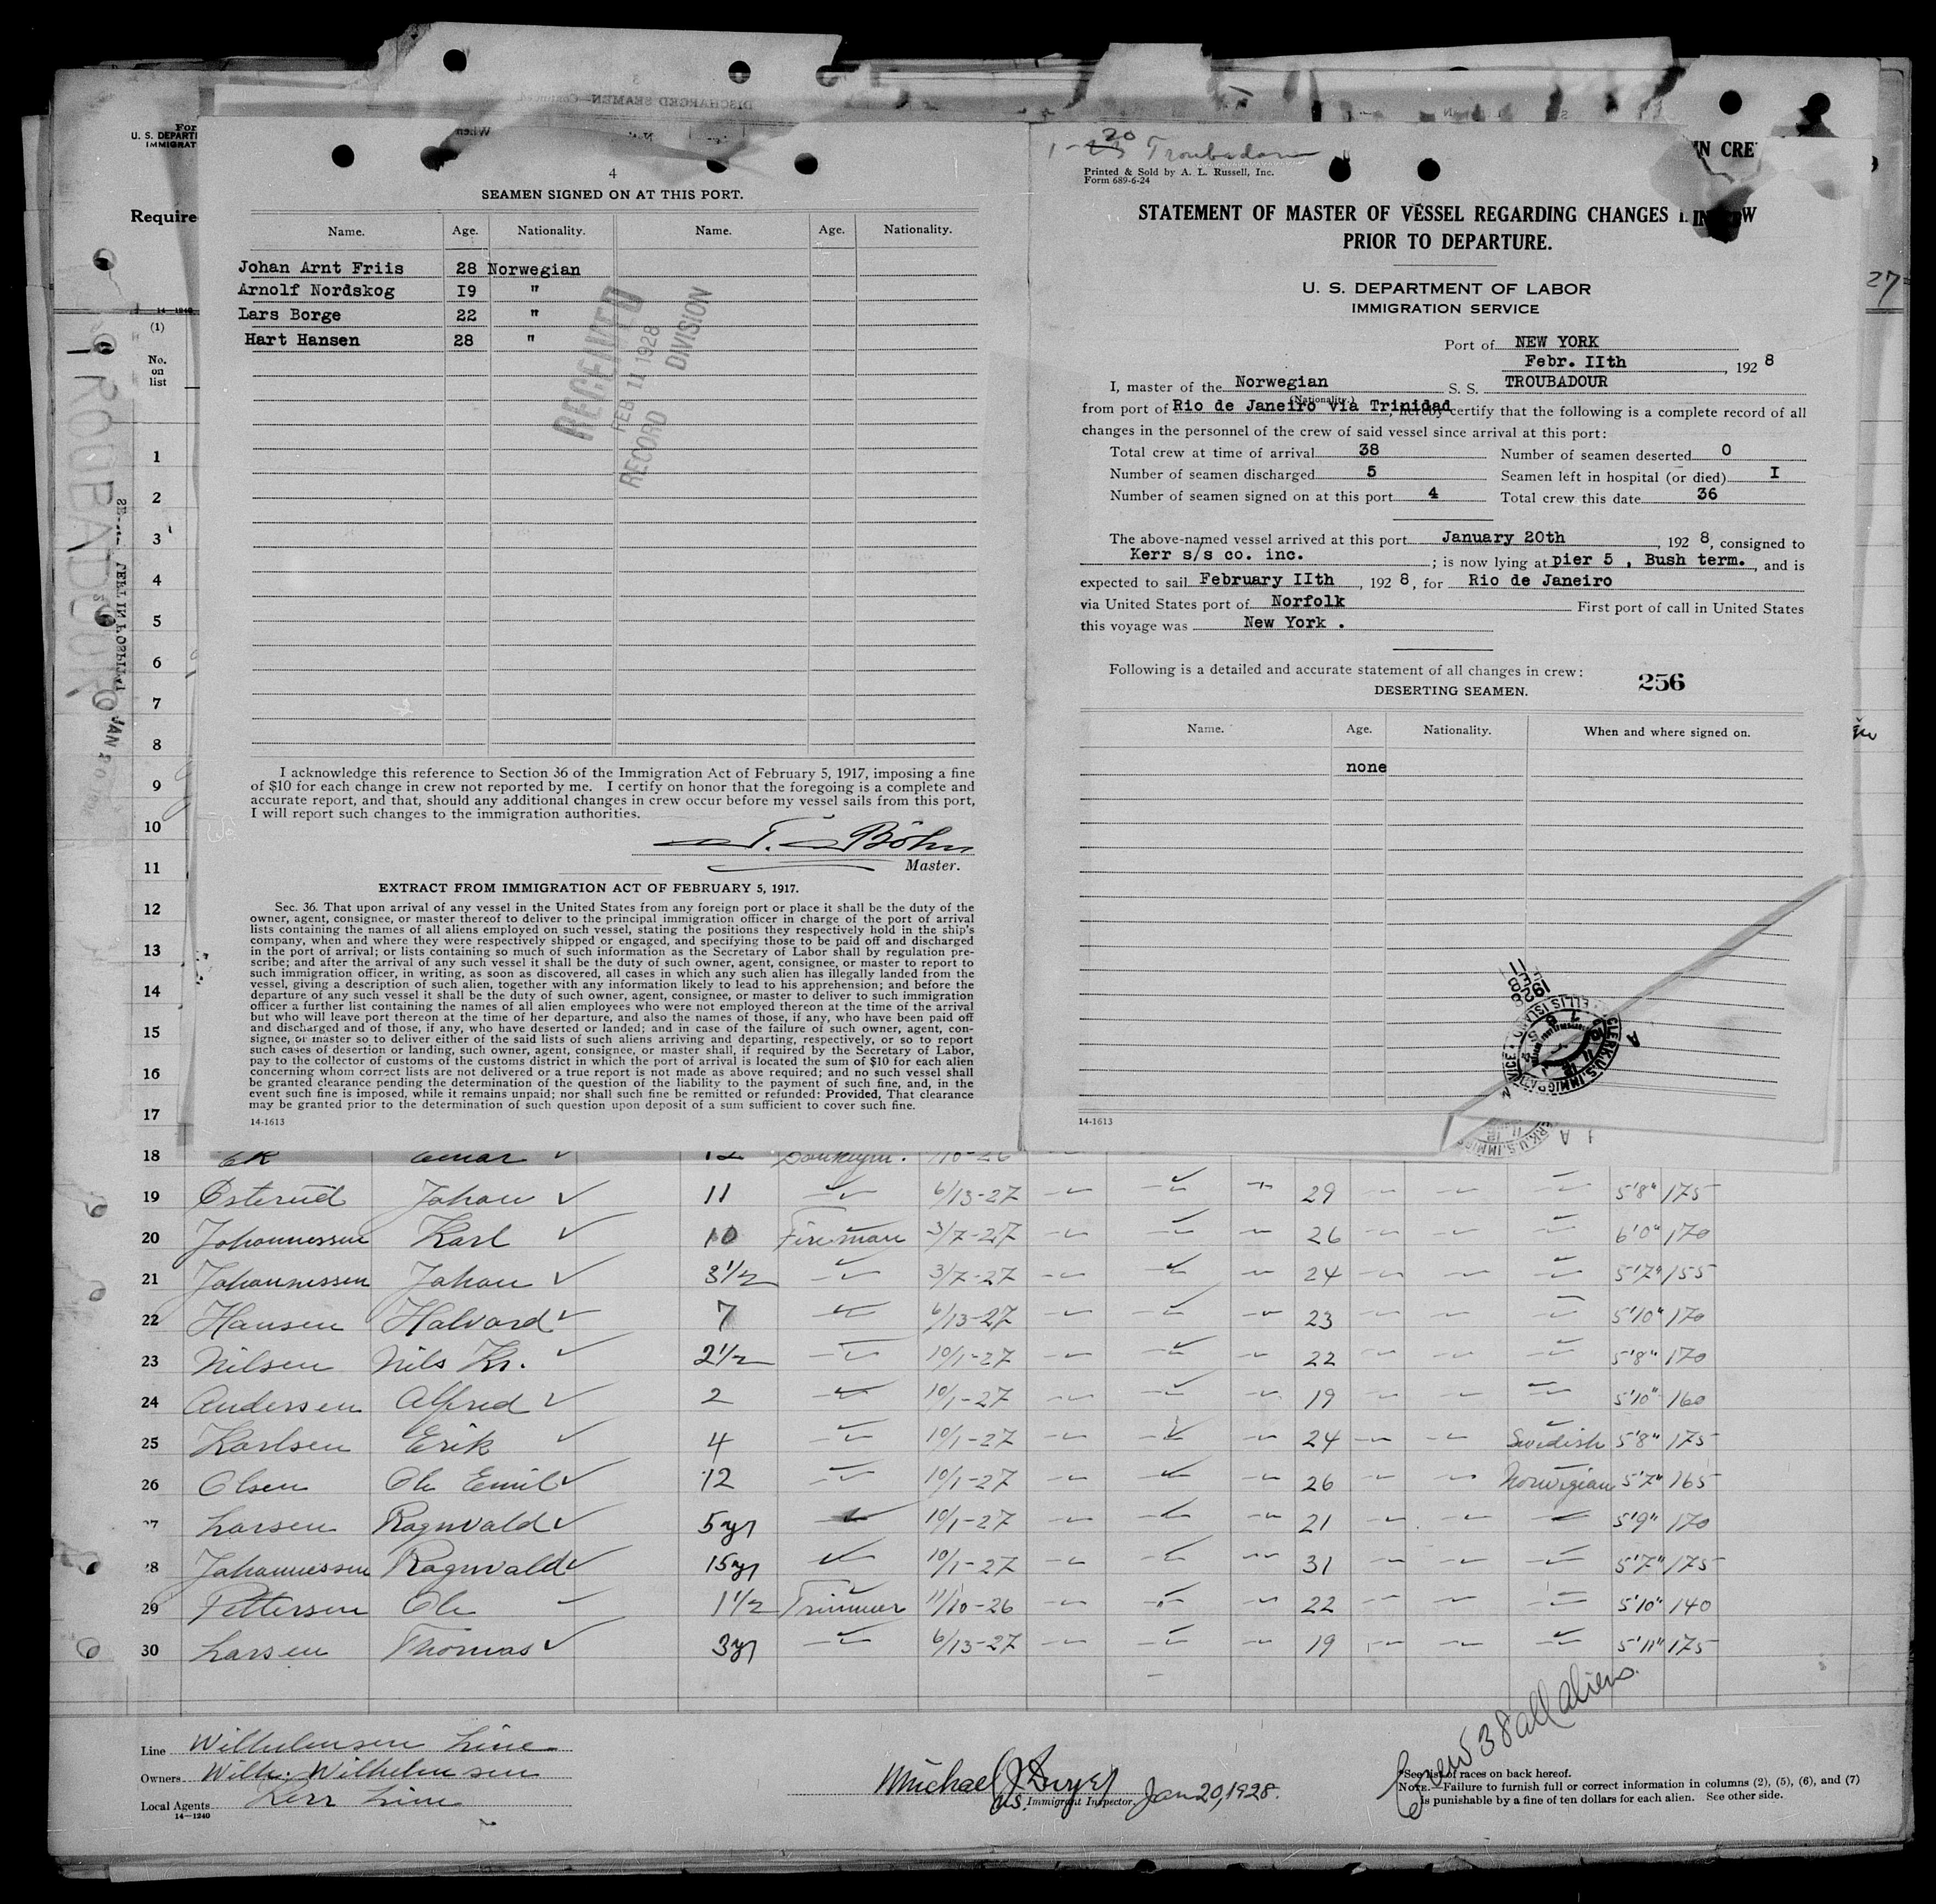 4
SEAMEN SIGNED ON AT THIS PORT.
Name. Age. Nationality. Name. Age. Nationality.
Johan Arnt Friis 28 Norwegian
Arnolf Nordskog I9 "
Lars Borge 22 "
Hart Hansen 28 "
RECEIVED
FEB 11 1928
RECORD DIVISION
I acknowledge this reference to Section 36 of the Immigration Act of February 5, 1917, imposing a fine
of $10 for each change in crew not reported by me. I certify on honor that the foregoing is a complete and
accurate report, and that, should any additional changes in crew occur before my vessel sails from this port,
I will report such changes to the immigration authorities.
T. Böhn
Master.
EXTRACT FROM IMMIGRATION ACT OF FEBRUARY 5, 1917.
Sec. 36. That upon arrival of any vessel in the United States from any foreign port or place it shall be the duty of the
owner, agent, consignee, or master thereof to deliver to the principal immigration officer in charge of the port of arrival
lists containing the names of all aliens employed on such vessel, stating the positions they respectively hold in the ship's
company, when and where they were respectively shipped or engaged, and specifying those to be paid off and discharged
in the port of arrival; or lists containing so much of such information as the Secretary of Labor shall by regulation pre-
scribe; and after the arrival of any such vessel it shall be the duty of such owner, agent, consignee, or master to report to
such immigration officer, in writing, as soon as discovered, all cases in which any such alien has illegally landed from the
vessel, giving a description of such alien, together with any information likely to lead to his apprehension; and before the
departure of any such vessel it shall be the duty of such owner, agent, consignee, or master to deliver to such immigration
officer a further list containing the names of all alien employees who were not employed thereon at the time of the arrival
but who will leave port thereon at the time of her departure, and also the names of those, if any, who have been paid off
and discharged and of those, if any, who have deserted or landed; and in case of the failure of such owner, agent, con-
signee, or master so to deliver either of the said lists of such aliens arriving and departing, respectively, or so to report
such cases of desertion or landing, such owner, agent, consignee, or master shall, if required by the Secretary of Labor,
pay to the collector of customs of the customs district in which the port of arrival is located the sum of $10 for each alien
concerning whom correct lists are not delivered or a true report is not made as above required; and no such vessel shall
be granted clearance pending the determination of the question of the liability to the payment of such fine, and, in the
event such fine is imposed, while it remains unpaid; nor shall such fine be remitted or refunded: Provided, That clearance
may be granted prior to the determination of such question upon deposit of a sum sufficient to cover such fine.
14-1613
1-20 Troubadour
Printed & Sold by A. L. Russell, Inc.
Form 689-6-24
STATEMENT OF MASTER OF VESSEL REGARDING CHANGES IN CREW
PRIOR TO DEPARTURE.
U. S. DEPARTMENT OF LABOR
IMMIGRATION SERVICE
Port of NEW YORK
Febr. IIth, 1928
I, master of the Norwegian S. S. TROUBADOUR
(Nationality.)
from port of Rio de Janeiro via Trinidad, hereby certify that the following is a complete record of all
changes in the personnel of the crew of said vessel since arrival at this port:
Total crew at time of arrival 38 Number of seamen deserted 0
Number of seamen discharged 5 Seamen left in hospital (or died) I
Number of seamen signed on at this port 4 Total crew this date 36
The above-named vessel arrived at this port January 20th, 1928, consigned to
Kerr s/s co. inc.; is now lying at pier 5 , Bush term., and is
expected to sail February IIth, 1928, for Rio de Janeiro
via United States port of Norfolk First port of call in United States
this voyage was New York .
Following is a detailed and accurate statement of all changes in crew:
256
DESERTING SEAMEN.
Name. Age. Nationality. When and where signed on.
none
FEB 11 1928
14-1613
For
U. S. DEPARTM
IMMIGRAT
Require
IN CRE
27
14-1240
(1)
No.
on
list
1
2
3
4
5
6
7
8
9
10
11
12
13
14
15
16
17
18 Ek Einar 12 Donkeym.
19 Østerud Johan 11 6/13-27 29 5'8" 175
20 Johannessen Karl 10 Fireman 3/7-27 26 6'0" 170
21 Johannessen Johan 3½ 3/7-27 24 5'7" 155
22 Hansen Halvard 7 6/13-27 23 5'10" 170
23 Nilsen Nils Kr. 2½ 10/1-27 22 5'8" 170
24 Andersen Alfred 2 10/1-27 19 5'10" 160
25 Karlsen Erik 4 10/1-27 24 Swedish 5'8" 175
26 Olsen Ole Emil 12 10/1-27 26 Norwegian 5'7" 165
27 Larsen Ragnvald 5yr 10/1-27 21 5'9" 170
28 Johannessen Ragnvald 15yr 10/1-27 31 5'7" 175
29 Pettersen Ole 1½ Trimmer 11/10-26 22 5'10" 140
30 Larsen Thomas 3yr 6/13-27 19 5'11" 175
Crew 38 all aliens.
Line Wilhelmsen Line
Owners Wilh. Wilhelmsen
Local Agents Kerr Line
14-1240
Michael J. Dwyer Jan 20, 1928.
U.S. Immigrant Inspector.
*See list of races on back hereof.
NOTE.—Failure to furnish full or correct information in columns (2), (5), (6), and (7)
is punishable by a fine of ten dollars for each alien. See other side.